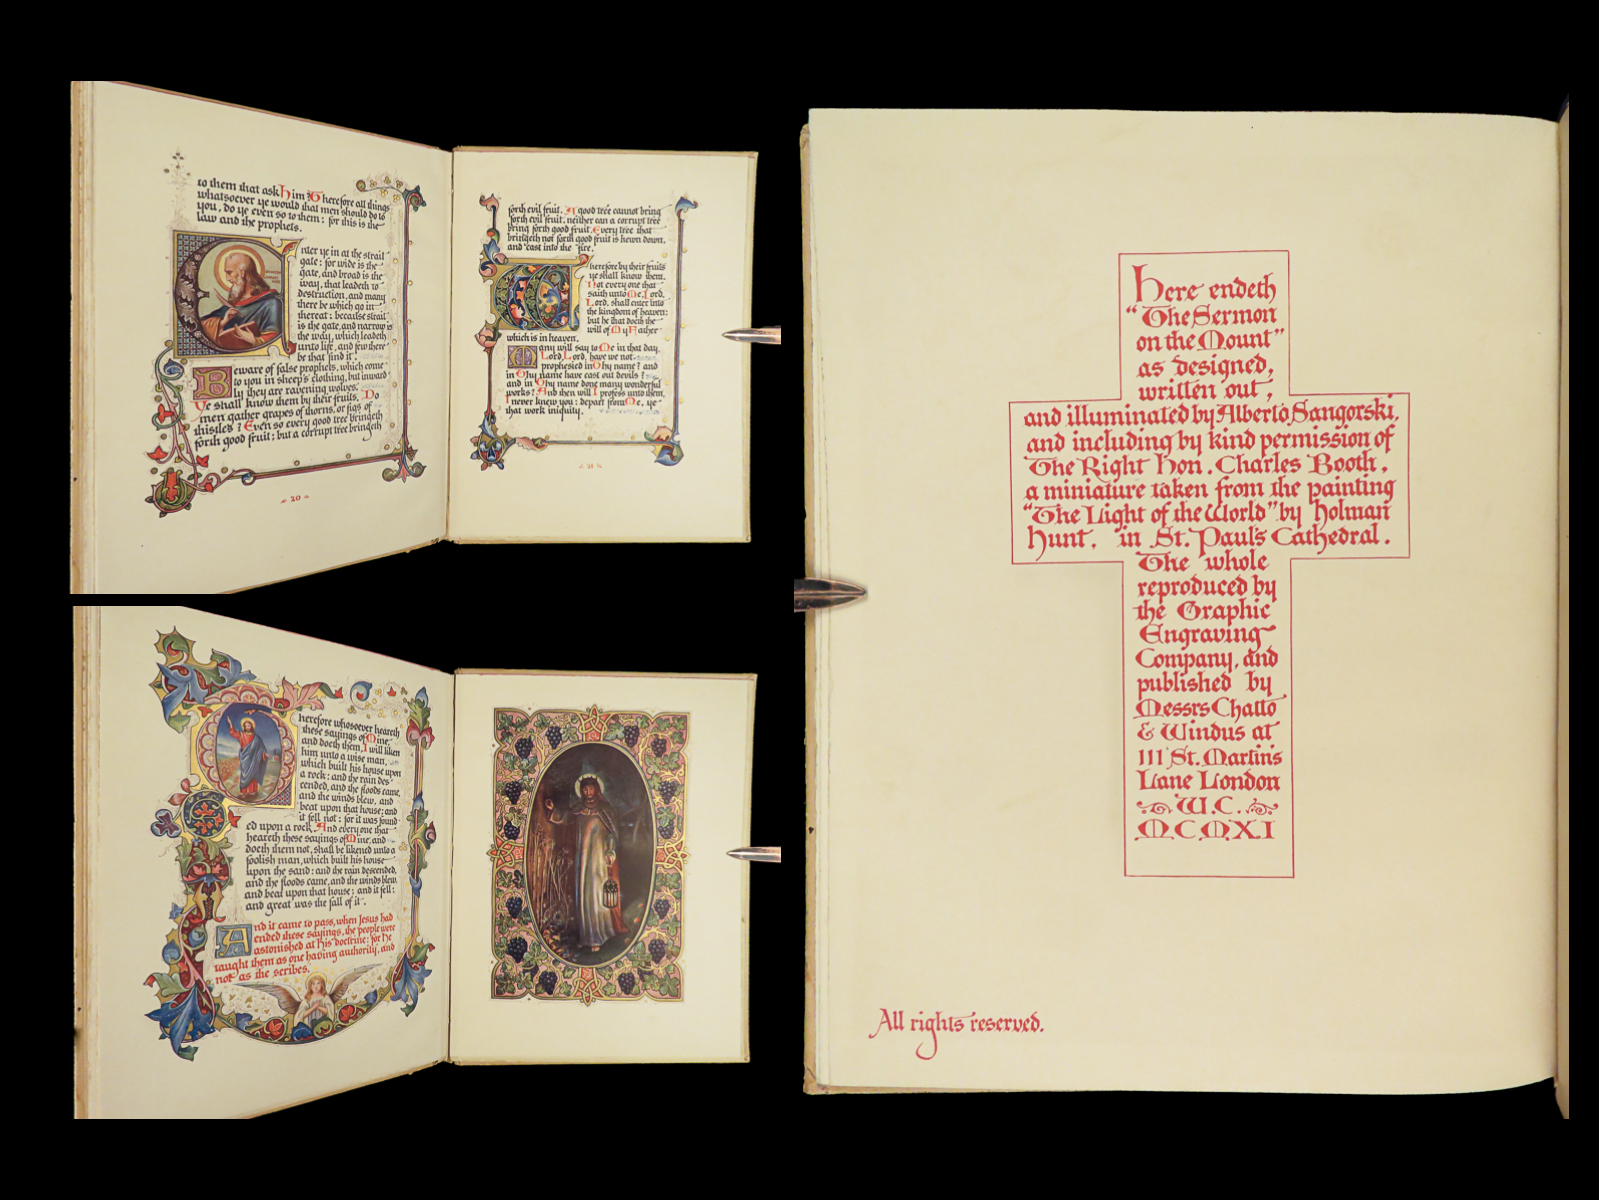 to them that ask Him? Therefore all things
whatsoever ye would that men should do to
you, do ye even so to them: for this is the
law and the prophets.
Enter ye in at the strait
gate: for wide is the
gate, and broad is the
way, that leadeth to
destruction, and many
there be which go in
thereat: because strait
is the gate, and narrow is
the way, which leadeth
unto life, and few there
be that find it.
Beware of false prophets, which come
to you in sheep's clothing, but inward
ly they are ravening wolves.
Ye shall know them by their fruits. Do
men gather grapes of thorns, or figs of
thistles? Even so every good tree bringeth
forth good fruit; but a corrupt tree bringeth
20
forth evil fruit. A good tree cannot bring
forth evil fruit, neither can a corrupt tree
bring forth good fruit. Every tree that
bringeth not forth good fruit is hewn down,
and cast into the fire.
Wherefore by their fruits
ye shall know them.
Not every one that
saith unto Me, Lord,
Lord, shall enter into
the kingdom of heaven:
but he that doeth the
will of My Father
which is in heaven.
Many will say to Me in that day,
Lord, Lord, have we not
prophesied in Thy name? and
in Thy name have cast out devils?
and in Thy name done many wonderful
works? And then will I profess unto them,
I never knew you: depart from Me, ye
that work iniquity.
21
Therefore whosoever heareth
these sayings of Mine,
and doeth them, I will liken
him unto a wise man,
which built his house upon
a rock: and the rain des-
cended, and the floods came,
and the winds blew, and
beat upon that house; and
it fell not: for it was found
ed upon a rock. And every one that
heareth these sayings of Mine, and
doeth them not, shall be likened unto a
foolish man, which built his house
upon the sand: and the rain descended,
and the floods came, and the winds blew,
and beat upon that house; and it fell:
and great was the fall of it.
And it came to pass, when Jesus had
ended these sayings, the people were
astonished at His doctrine: for He
taught them as one having authority, and
not as the scribes.
Here endeth
"The Sermon
on the Mount"
as designed,
written out,
and illuminated by Alberto Sangorski,
and including by kind permission of
The Right Hon. Charles Booth,
a miniature taken from the painting
"The Light of the World" by Holman
Hunt, in St. Paul's Cathedral.
The whole
reproduced by
the Graphic
Engraving
Company, and
published by
Messrs Chatto
& Windus at
111 St. Martin's
Lane London
W.C.
MCMXI
All rights reserved.